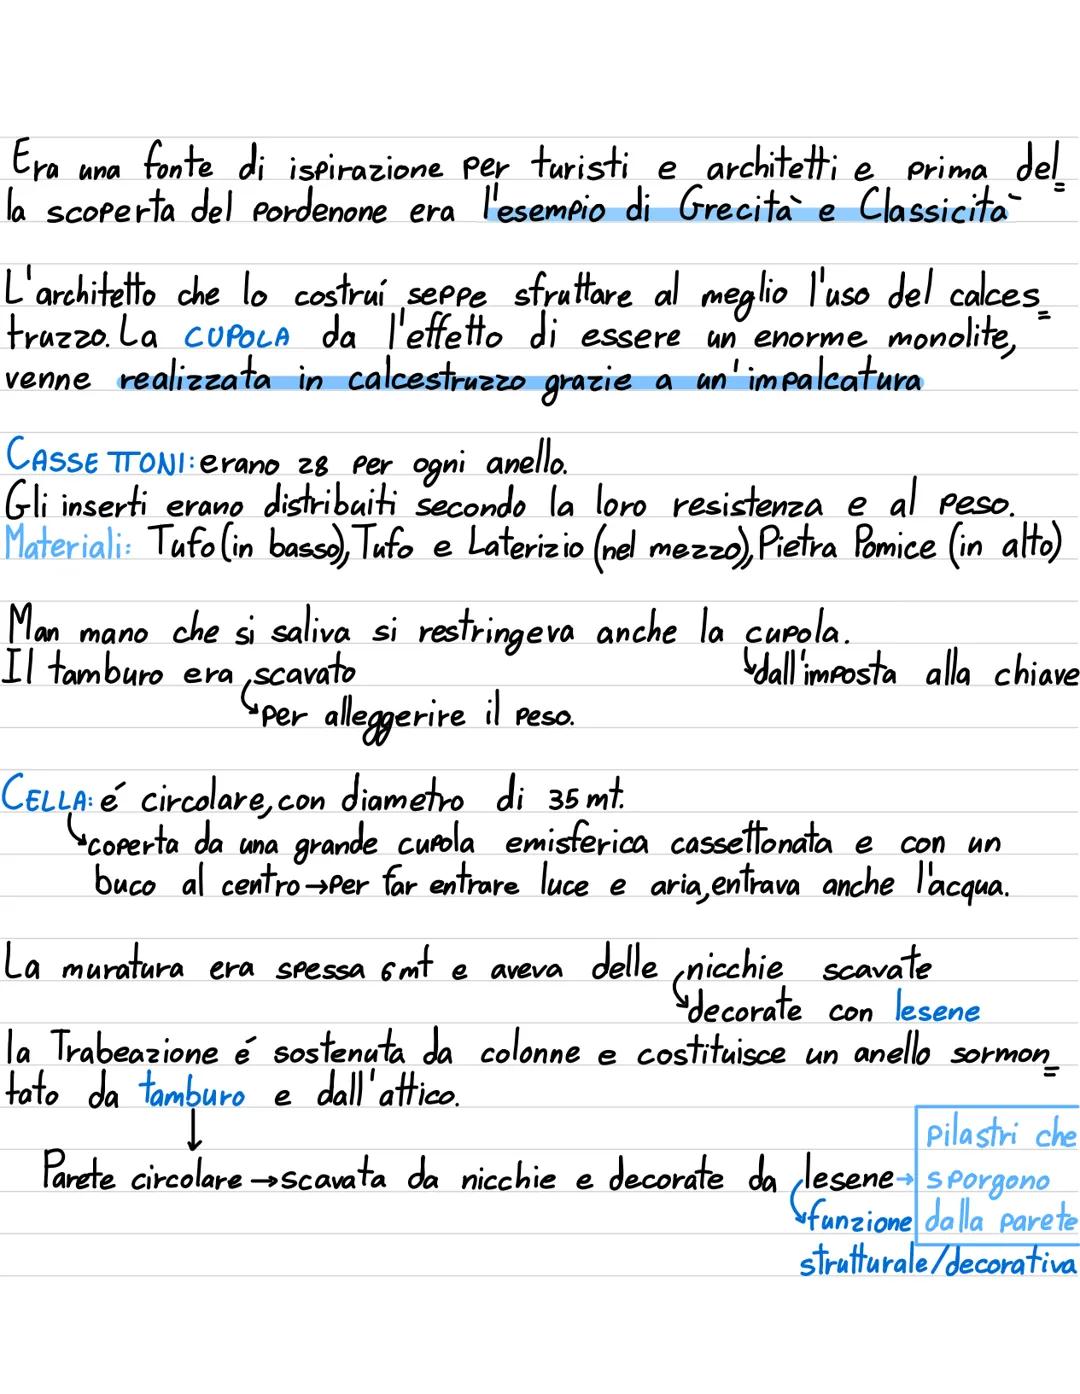 Era una fonte di ispirazione per turisti e architetti e prima del=
la scoperta del Pordenone era l'esempio di Grecità e Classicità
L'architetto che lo costruí seppe sfruttare al meglio l'uso del calces=
truzzo. La CUPOLA da l'effetto di essere un enorme monolite,
venne realizzata in calcestruzzo grazie a un'impalcatura
CASSETTONI: erano 28 per ogni anello.
Gli inserti erano distribuiti secondo la loro resistenza e al peso.
Materiali: Tufo (in basso), Tufo e Laterizio (nel mezzo), Pietra Pomice (in alto)
Man mano che si saliva si restringeva anche la cupola.
Il tamburo era scavato ↳dall'imposta alla chiave
↳per alleggerire il peso.
CELLA: é circolare, con diametro di 35 mt.
↳coperta da una grande cupola emisferica cassettonata e con un
buco al centro→per far entrare luce e aria, entrava anche l'acqua.
La muratura era spessa 6 mt e aveva delle nicchie scavate
↳decorate con lesene
la Trabeazione é sostenuta da colonne e costituisce un anello sormon=
tato da tamburo e dall'attico.
↓
Parete circolare →scavata da nicchie e decorate da lesene→
↳funzione
strutturale/decorativa
pilastri che
sporgono
dalla parete